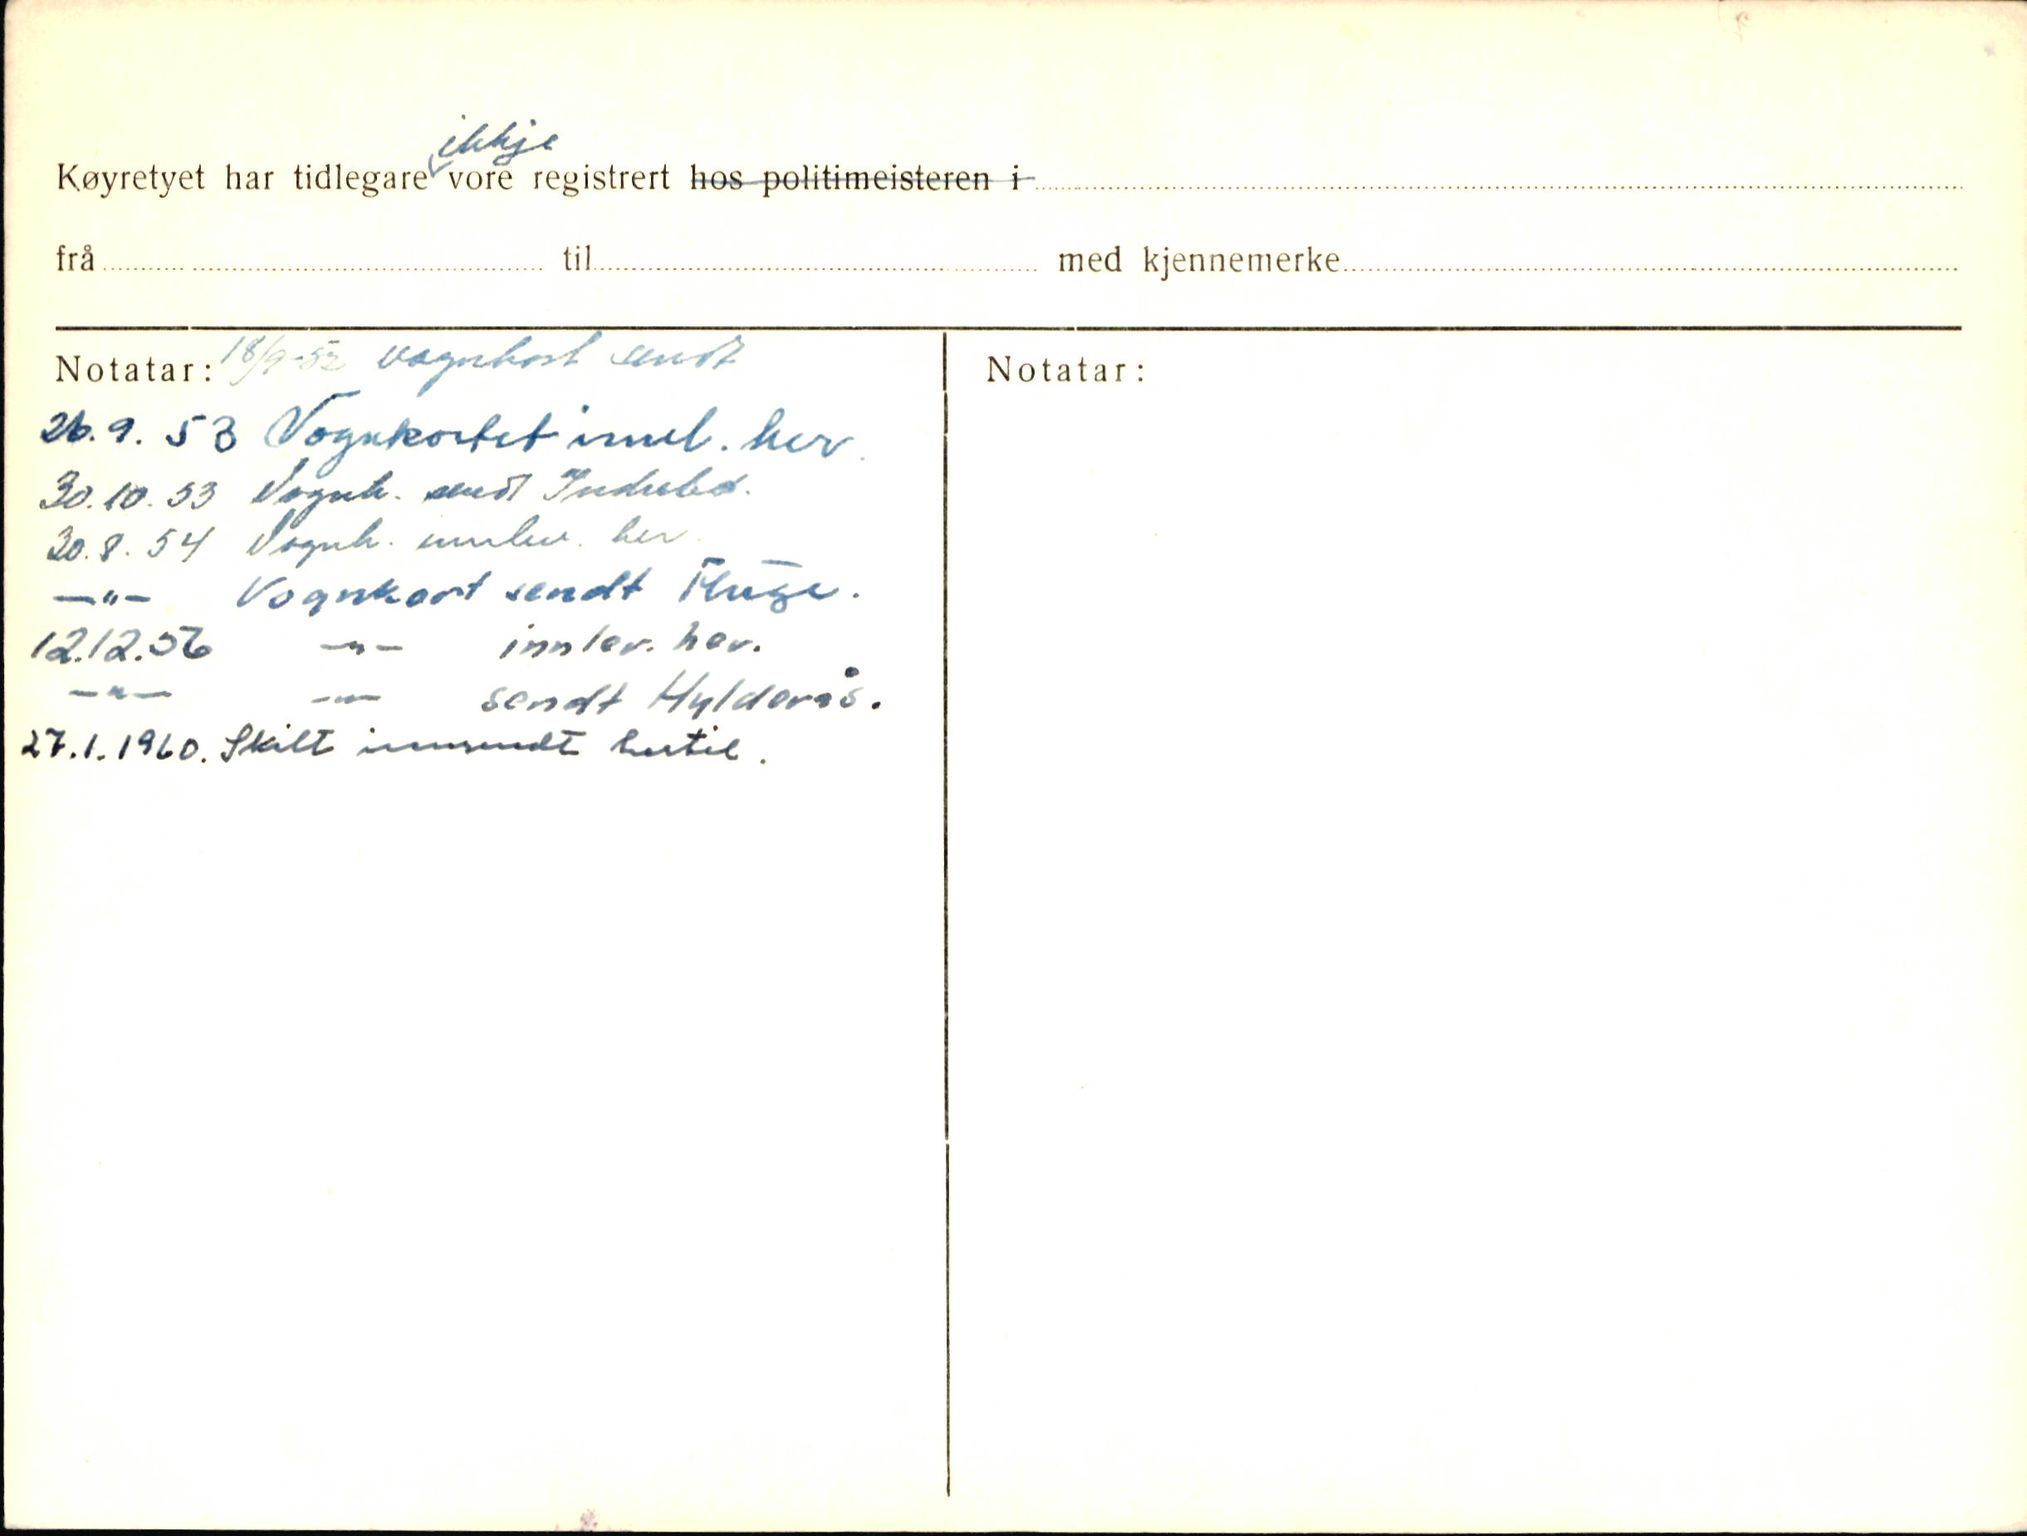 ikkje
Køyretyet har tidlegare vore registrert hos politimeisteren i
frå til med kjennemerke
Notatar: 18/9-52 vognkort sendt
26.9.53 Vognkortet innl. her.
30.10.53 Vognk. sendt Indrebø.
30.8.54 Vognk. innlev. her.
—"— Vognkort sendt Fluge.
12.12.56 —"— innlev. her.
—"— —"— sendt Hylderås.
27.1.1960. Skilt innsendt hertil.
Notatar: